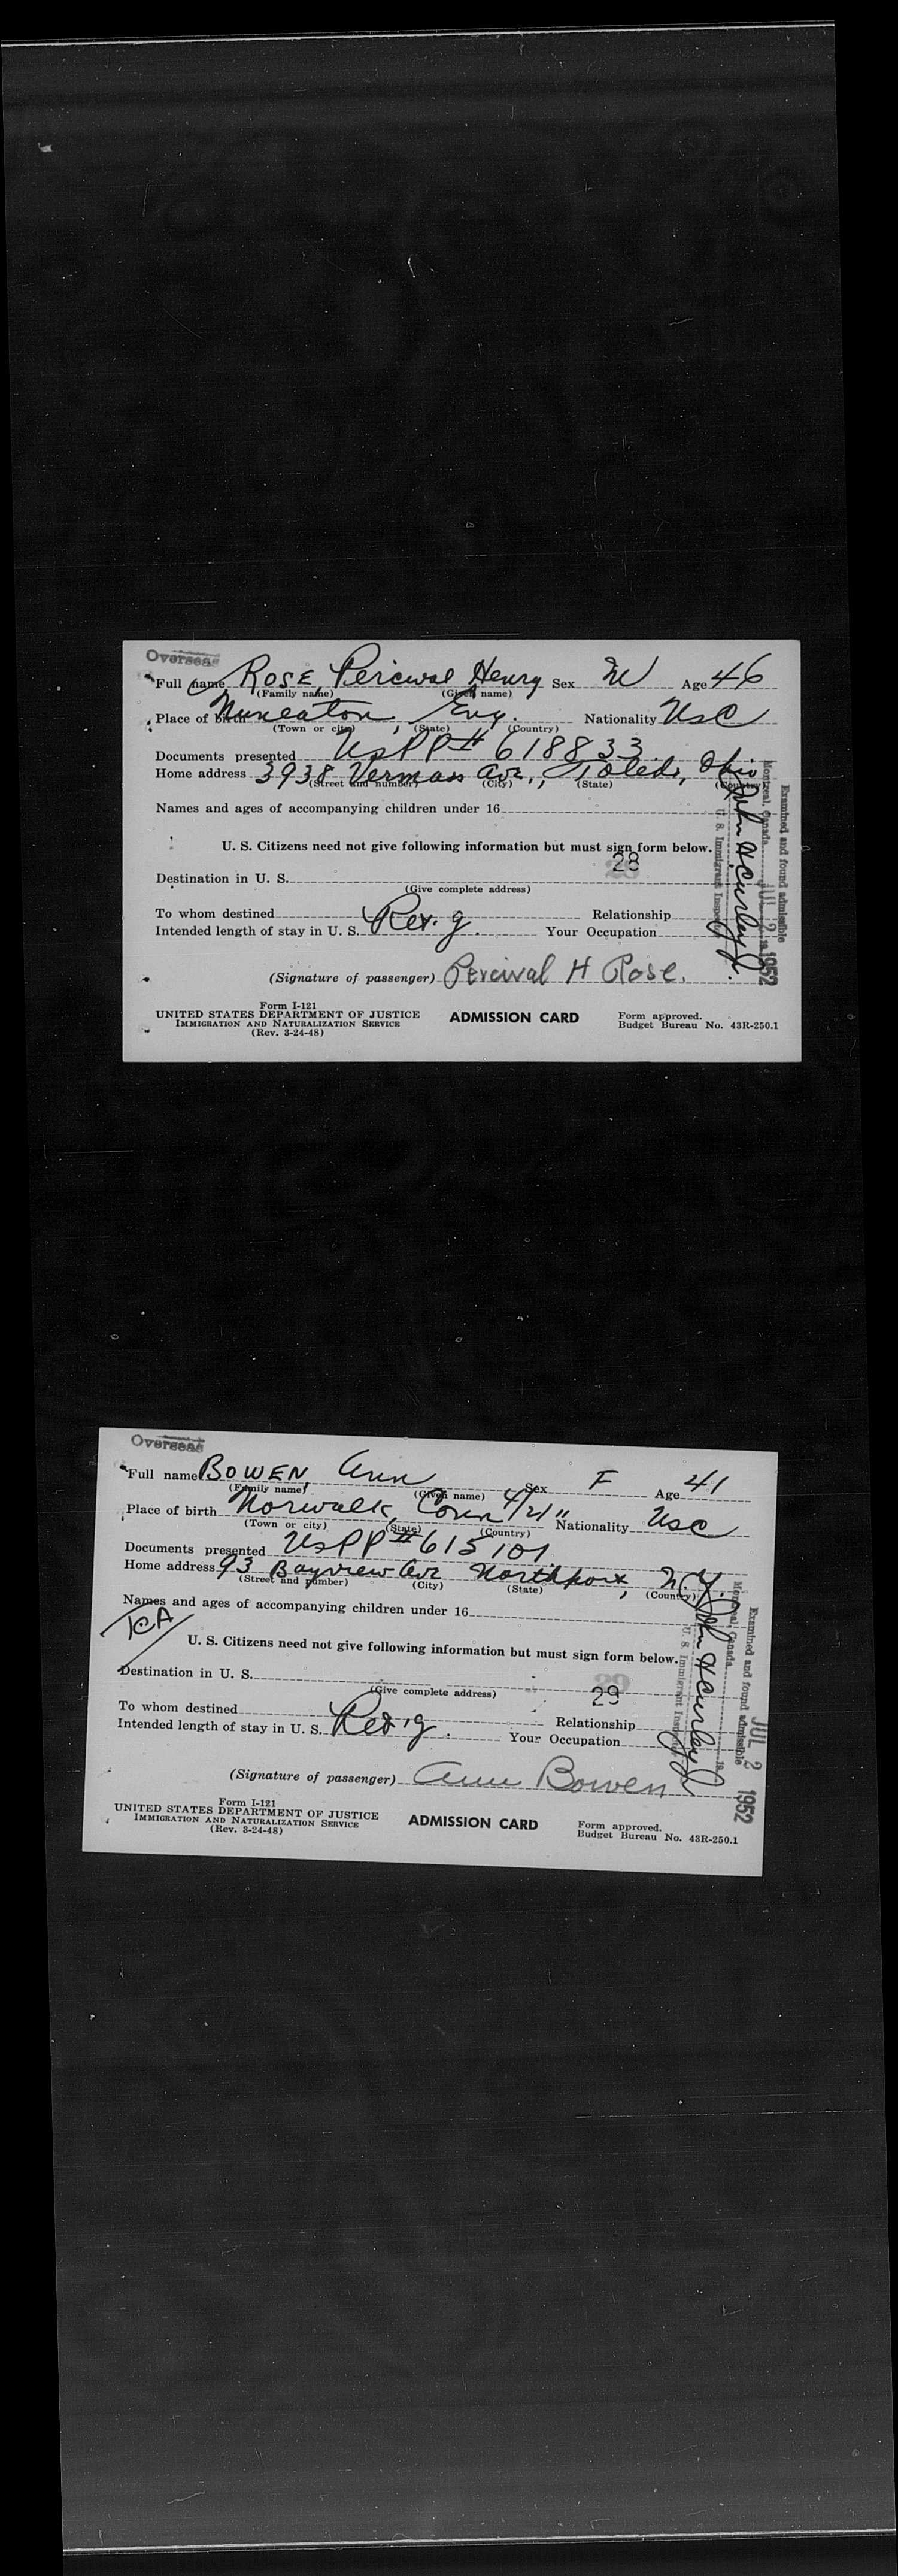 Overseas
Full name ROSE, Percival Henry Sex M Age 46
(Family name) (Given name)
Place of birth Nuneaton, Eng. Nationality UsC
(Town or city) (State) (Country)
Documents presented UsPP# 618833
Home address 3938 Vermaas Ave., Toledo, Ohio
(Street and number) (City) (State) (Country)
Names and ages of accompanying children under 16
U. S. Citizens need not give following information but must sign form below.
28
Destination in U. S.
(Give complete address)
To whom destined Relationship
Intended length of stay in U. S. Your Occupation
(Signature of passenger) Percival H Rose.
Form I-121
UNITED STATES DEPARTMENT OF JUSTICE
IMMIGRATION AND NATURALIZATION SERVICE
(Rev. 3-24-48)
ADMISSION CARD
Form approved.
Budget Bureau No. 43R-250.1
Examined and found admissible
Montreal, Canada JUL 2 1952
John H Curley Jr.
U. S. Immigrant Inspector
Overseas
Full name BOWEN, Ann Sex F Age 41
(Family name) (Given name)
Place of birth Norwalk, Conn 4/21/11 Nationality Usc
(Town or city) (State) (Country)
Documents presented UsPP# 615101
Home address 93 Bayview Ave Northport, N.Y.
(Street and number) (City) (State) (Country)
Names and ages of accompanying children under 16
U. S. Citizens need not give following information but must sign form below.
Destination in U. S.
29
(Give complete address)
To whom destined Relationship
Intended length of stay in U. S. Your Occupation
(Signature of passenger) Ann Bowen
Form I-121
UNITED STATES DEPARTMENT OF JUSTICE
IMMIGRATION AND NATURALIZATION SERVICE
(Rev. 3-24-48)
ADMISSION CARD
Form approved.
Budget Bureau No. 43R-250.1
Examined and found admissible
Montreal, Canada JUL 2 1952
John H Curley Jr
U. S. Immigrant Inspector